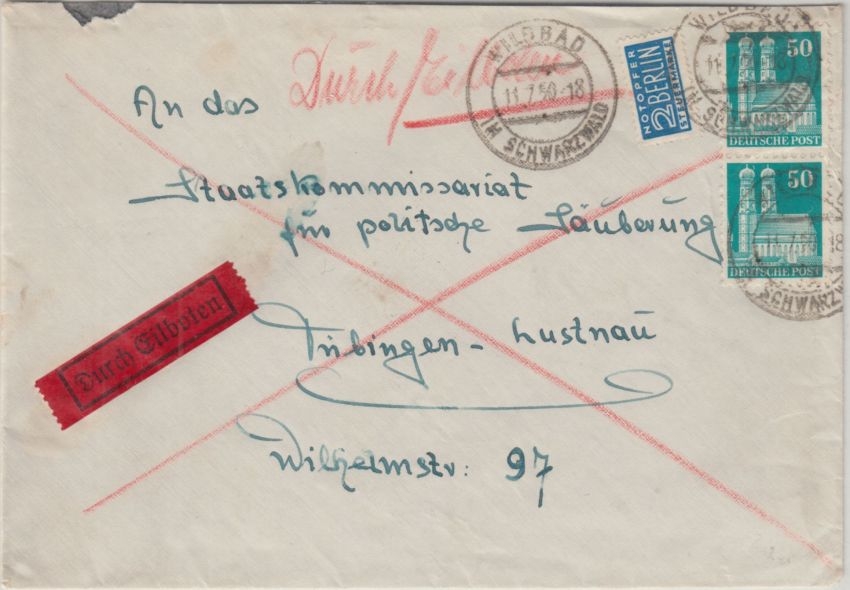 Durch/Eilboten
WILDBAD
11.7.50-18
IM SCHWARZWALD
NOTOPFER
2 BERLIN
STEUERMARKE
50
DEUTSCHE POST
WILDBAD
IM SCHWARZWALD
50
DEUTSCHE POST
18
SCHWARZW
An das
Staatskommissariat
für politsche Säuberung
Durch Eilboten
Tübingen-Lustnau
Wilhelmstr: 97